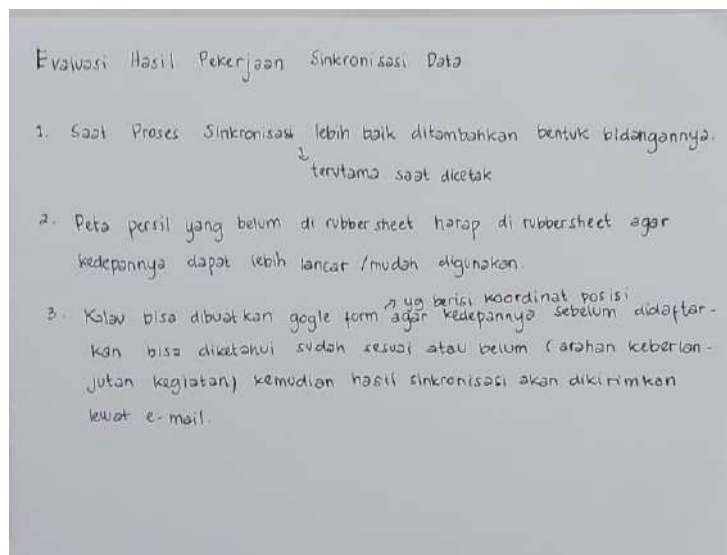 Evaluasi Hasil Pekerjaan Sinkronisasi Data
1. Saat Proses Sinkronisasi lebih baik ditambahkan bentuk bidangannya.
↓
terutama saat dicetak
2. Peta persil yang belum di rubber sheet harap di rubbersheet agar
kedepannya dapat lebih lancar / mudah digunakan.
↗ yg berisi koordinat posisi
3. Kalau bisa dibuatkan gogle form agar kedepannya sebelum didaftar-
kan bisa diketahui sudah sesuai atau belum (arahan keberlan-
jutan kegiatan) kemudian hasil sinkronisasi akan dikirimkan
lewat e-mail.